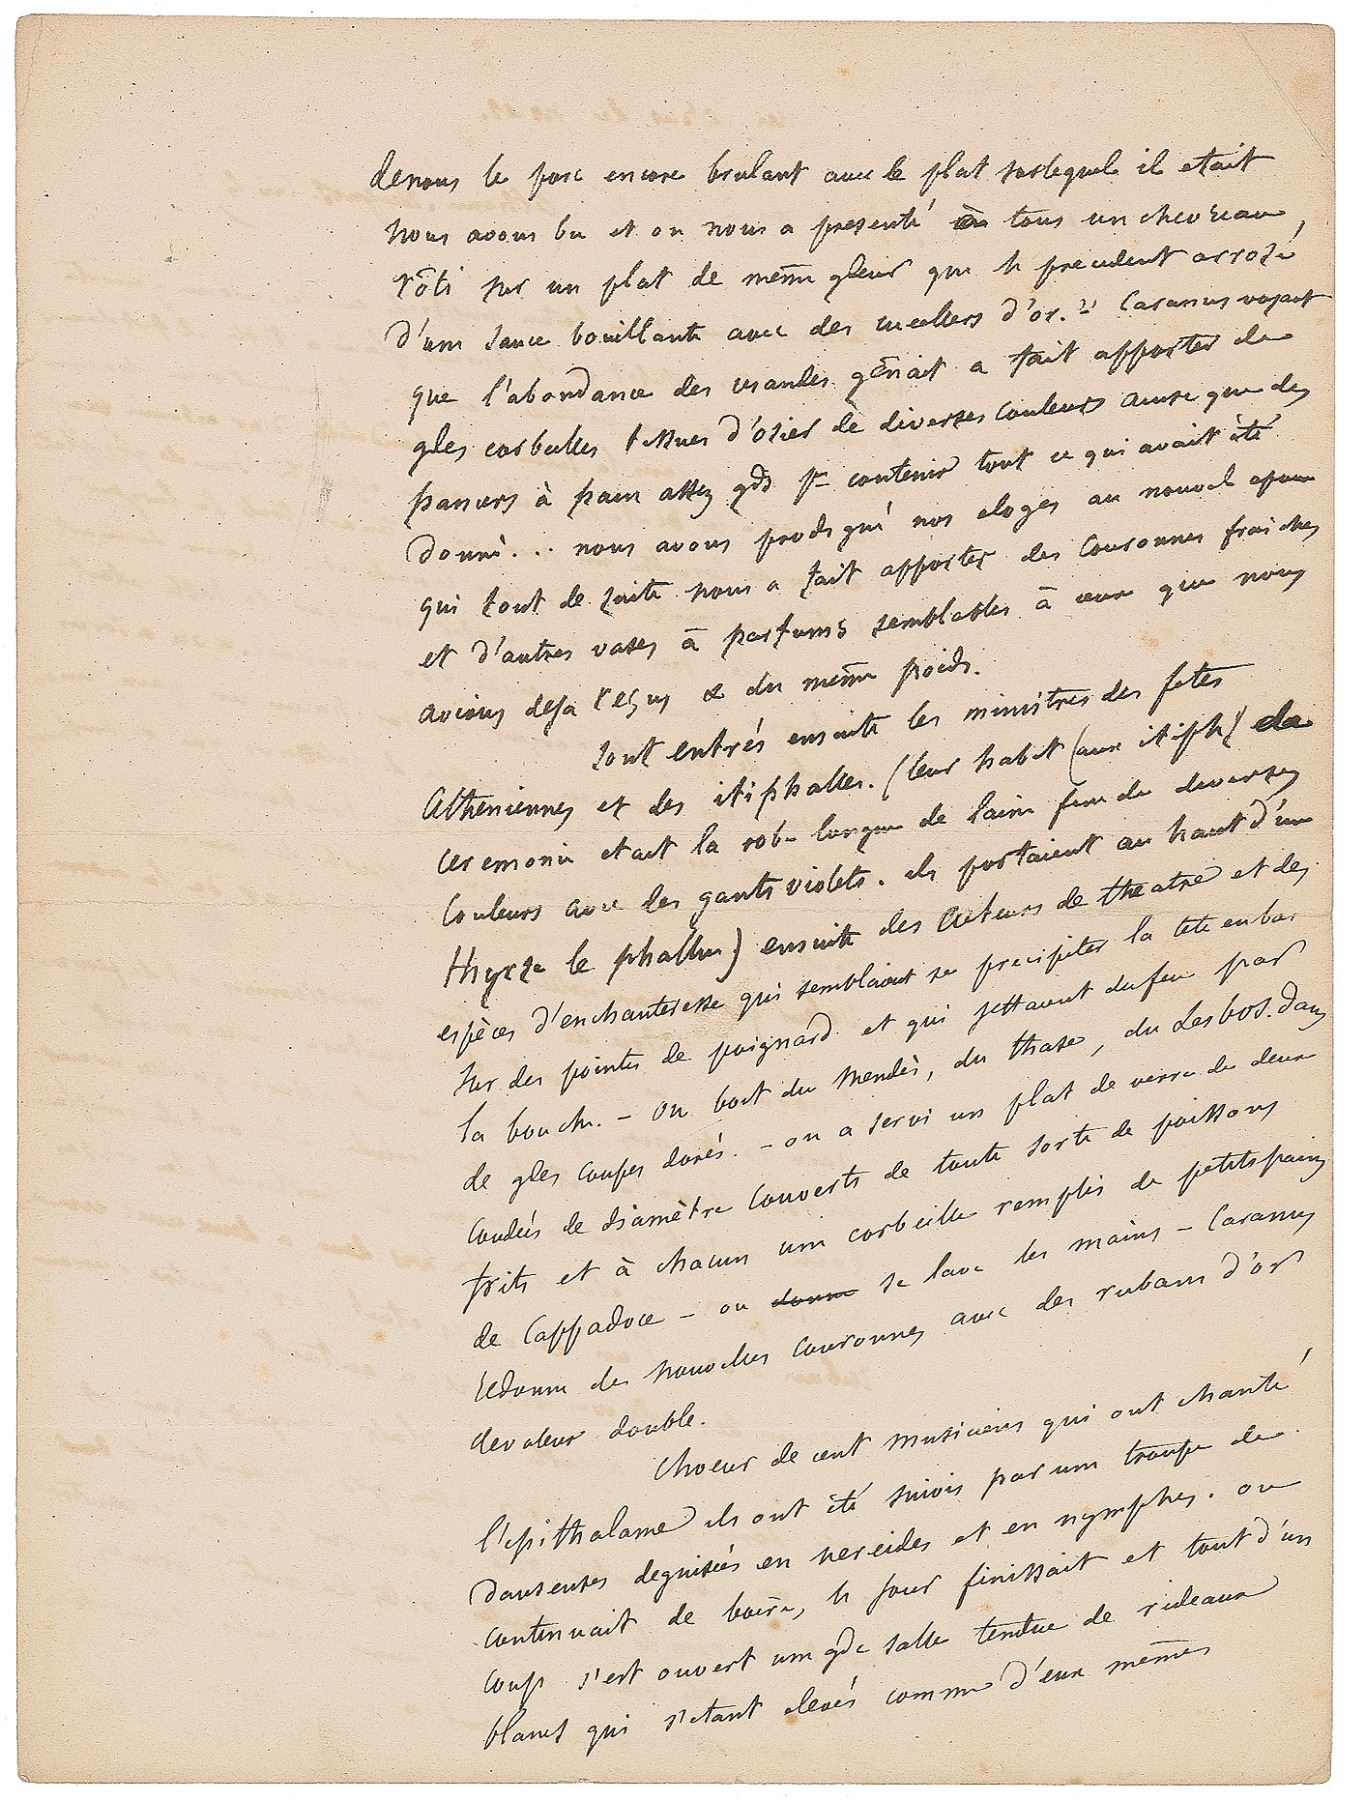 denous le porc encore brulant avec le plat surlequel il etait
nous avons bu et on nous a presenté à tous un chevreau
rôti sur un plat de même gdeur que le precedent arrozé
d'une sauce bouillante avec des cuellers d'or. Caranus voyant
que l'abondance des viandes gênait a fait apporter de
gdes corbeilles tissues d'ozier de diverses couleurs ainsi que des
paniers à pain assez gds pr contenir tout ce qui avait été
donné... nous avons prodigué nos eloges au nouvel epoux
qui tout de suite nous a fait apporter des couronnes fraiches
et d'autres vases à parfums semblables à ceux que nous
avions deja reçus & du même poids.
sont entrés ensuite les ministres des fetes
Atheniennes et des itiphalles. (leur habit (aux itiph) de
ceremonie etait la robe longue de laine fine de diverses
couleurs avec des gants violets. ils portaient au haut d'un
thyrse le phallus) ensuite des acteurs de theatre et des
espèces d'enchanteresse qui semblaient se precipiter la tete en bas
sur des pointes de poignard et qui jettaient du feu par
la bouche. - on boit du Mendès, du thase, du Lesbos. dans
de gdes coupes dorés. - on a servi un plat de verre de deux
coudées de diamètre couverts de toute sorte de poissons
frits et à chacun une corbeille remplis de petits pains
de Cappadoce - on donne se lave les mains - Caranus
redonne de nouvelles couronnes avec des rubans d'or
de valeur double.
choeur de cent musiciens qui ont chanté
l'epithalame ils ont été suivis par une troupe de
danseuses deguisées en nereides et en nymphes. on
continuait de boire, le jour finissait et tout d'un
coup s'est ouvert une gde salle tendue de rideaux
blancs qui s'etant elevés comme d'eux mêmes